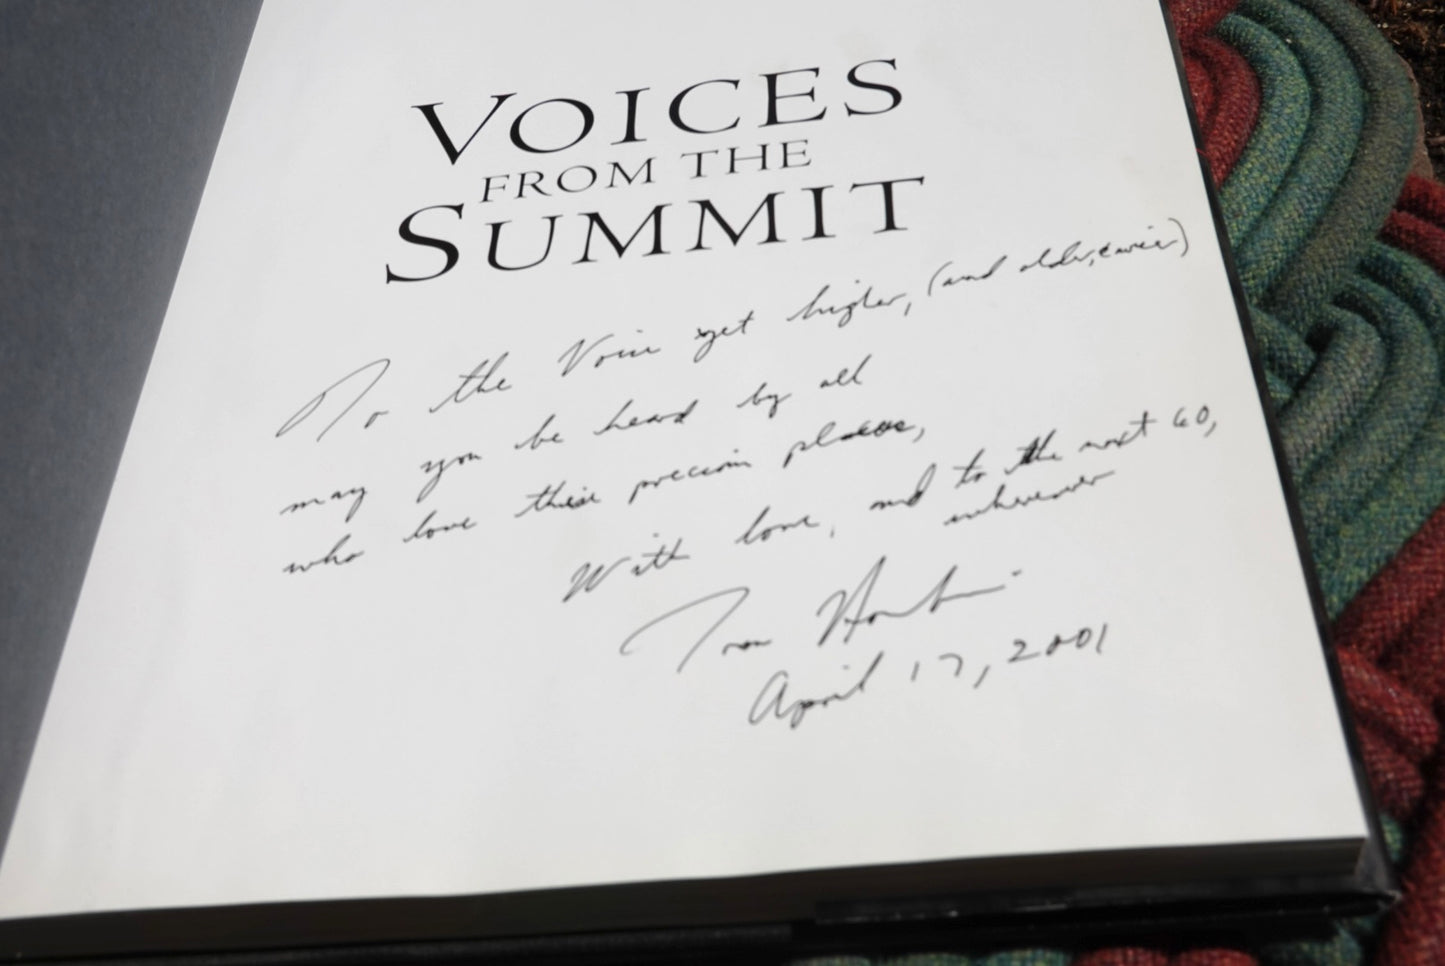 VOICES
FROM THE
SUMMIT
To the Voice yet higher, (and older,
may you be heard by all
who love these precious places,
With love, and to the next 60,
wherever
Tom
April 17, 2001